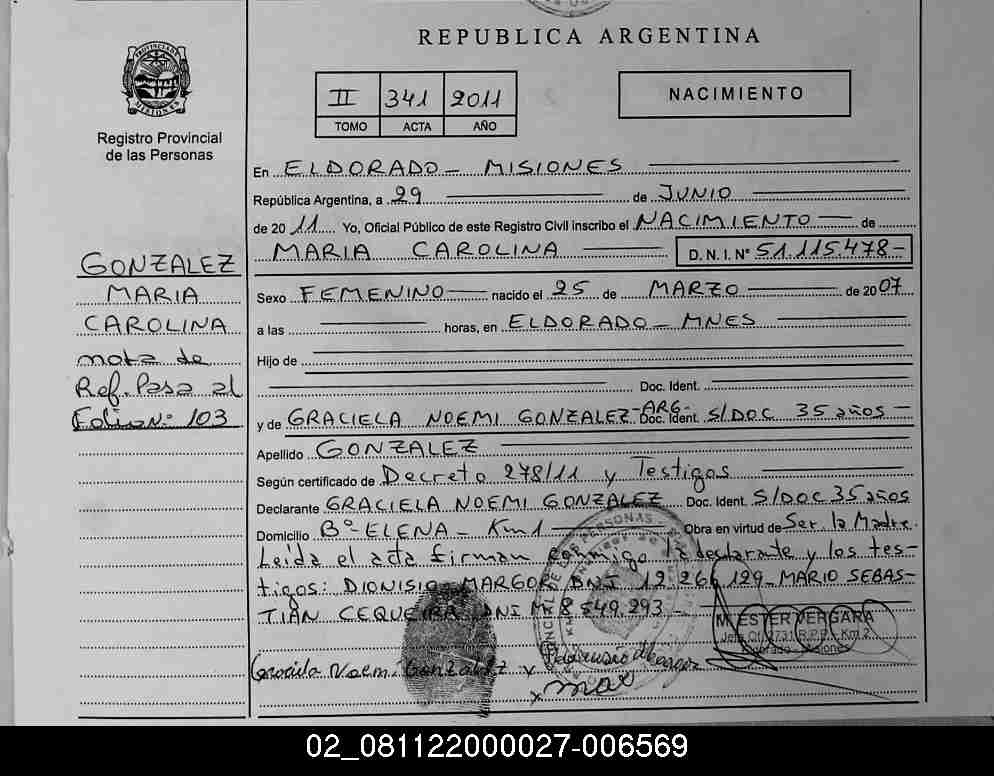 PROVINCIA DE MISIONES
Registro Provincial
de las Personas
GONZALEZ
MARIA
CAROLINA
nota de
Ref. Pasa al
Folio Nº 103
REPUBLICA ARGENTINA
II 341 2011
TOMO ACTA AÑO
NACIMIENTO
En ELDORADO - MISIONES
República Argentina, a 29 de JUNIO
de 2011 Yo, Oficial Público de este Registro Civil inscribo el NACIMIENTO de
MARIA CAROLINA D.N.I. Nº 51.115.478-
Sexo FEMENINO nacido el 25 de MARZO de 2007
a las horas, en ELDORADO - MNES
Hijo de
Doc. Ident.
y de GRACIELA NOEMI GONZALEZ -ARG- Doc. Ident. S/DOC 35 años -
Apellido GONZALEZ
Según certificado de Decreto 278/11 y Testigos
Declarante GRACIELA NOEMI GONZALEZ Doc. Ident. S/DOC 35 años
Domicilio Bº ELENA - Km1 Obra en virtud de Ser la Madre.
Leida el acta firman conmigo la declarante y los tes-
tigos: DIONISIO MARGOR DNI 12.266.129- MARIO SEBAS-
TIÁN CEQUEIRA DNI M 8.549.293 -
M. ESTER VERGARA
Jefa Of. 2731 R.P.P. Km 2
Eldorado - Misiones
Graciela Noemi Gonzalez
02_081122000027-006569